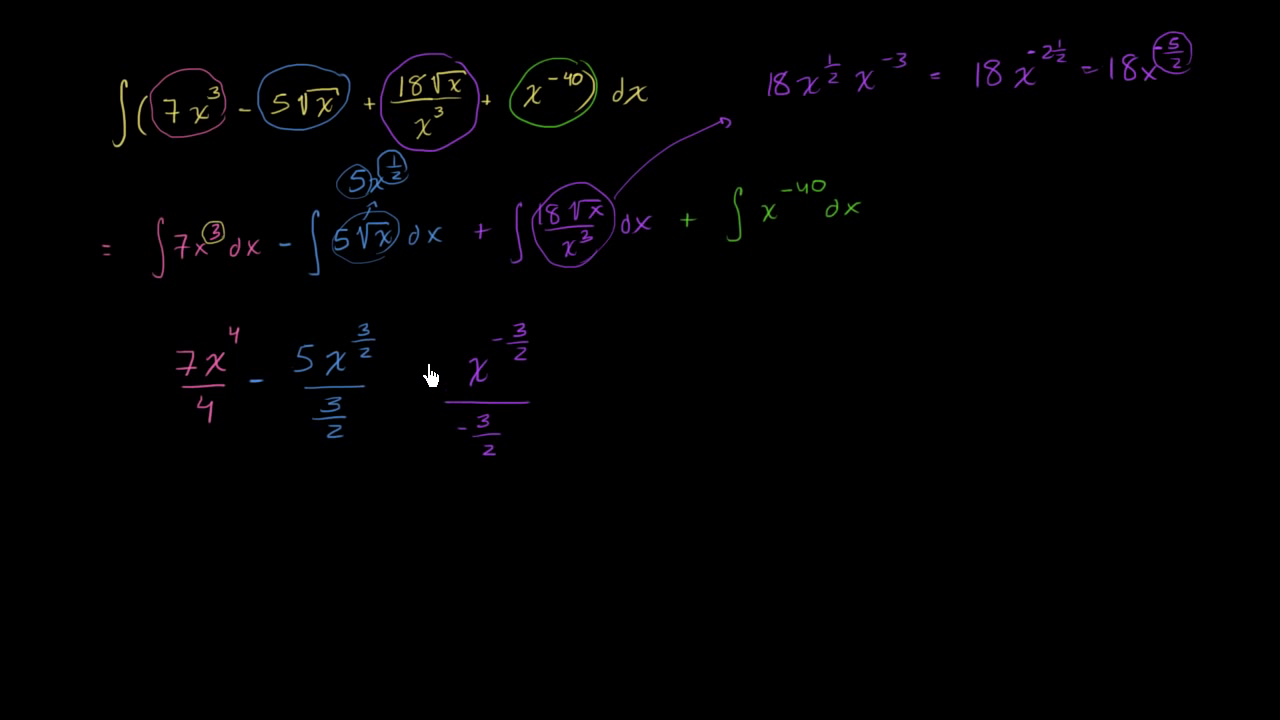 ∫(7x³ - 5√x + 18√x/x³ + x⁻⁴⁰) dx
18x^(1/2) x^(-3) = 18x^(-2 1/2) = 18x^(-5/2)
5x^(1/2)
= ∫7x³dx - ∫5√x dx + ∫18√x/x³ dx + ∫x⁻⁴⁰dx
7x⁴/4 - 5x^(3/2)/(3/2) x^(-3/2)/(-3/2)